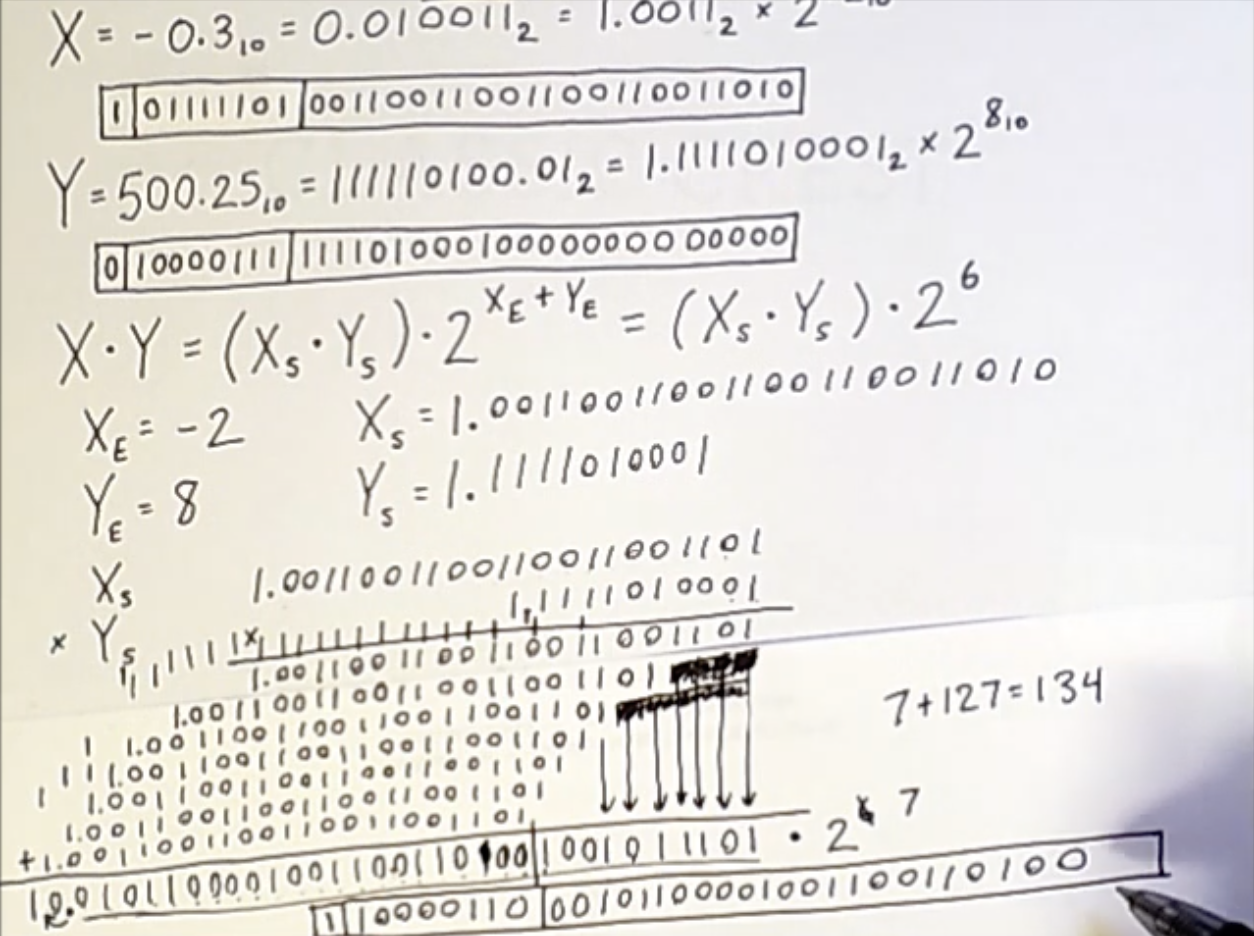 X = -0.3₁₀ = 0.010011₂ = 1.0011₂ × 2
1 01111101 00110011001100110011010
Y = 500.25₁₀ = 111110100.01₂ = 1.1111010001₂ × 2^8₁₀
0 10000111 11110100010000000000000
X · Y = (Xₛ · Yₛ) · 2^(X_E + Y_E) = (Xₛ · Yₛ) · 2^6
X_E = -2 Xₛ = 1.00110011001100110011010
Y_E = 8 Yₛ = 1.1111010001
Xₛ 1.0011001100110011001101
× Yₛ 1.1111010001
1.0011001100110011001101
1.0011001100110011001101
7+127=134
1.0011001100110011001101
1.0011001100110011001101
1.0011001100110011001101
1.0011001100110011001101
+1.0011001100110011001101
1001011101 · 2 7
1 10000110 00101100001001100110100